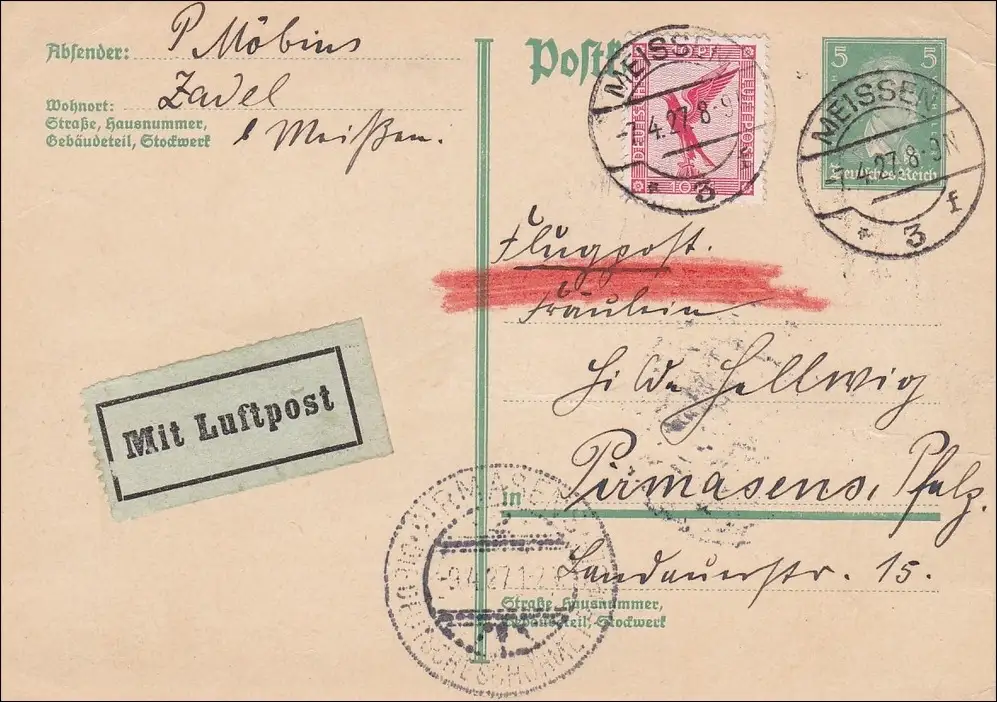 Absender: P Möbius
Wohnort: Zadel
Straße, Hausnummer,
Gebäudeteil, Stockwerk
b/ Meißen.
Postk
DEUTSCHE LUFTPOST
10
MEISSEN
-7.4.27.8-9N
* 3
5 5
Deutsches Reich
MEISSEN
-7.4.27.8-9N
* 3 f
Flugpost.
Fräulein
Hilde Hellwig
in Pirmasens, Pfalz.
Landauerstr. 15.
Straße, Hausnummer,
Gebäudeteil, Stockwerk
Mit Luftpost
PIRMASENS
-9.4.27.1-2
DIE DEUTSCHE SCHUHMETROPOLE